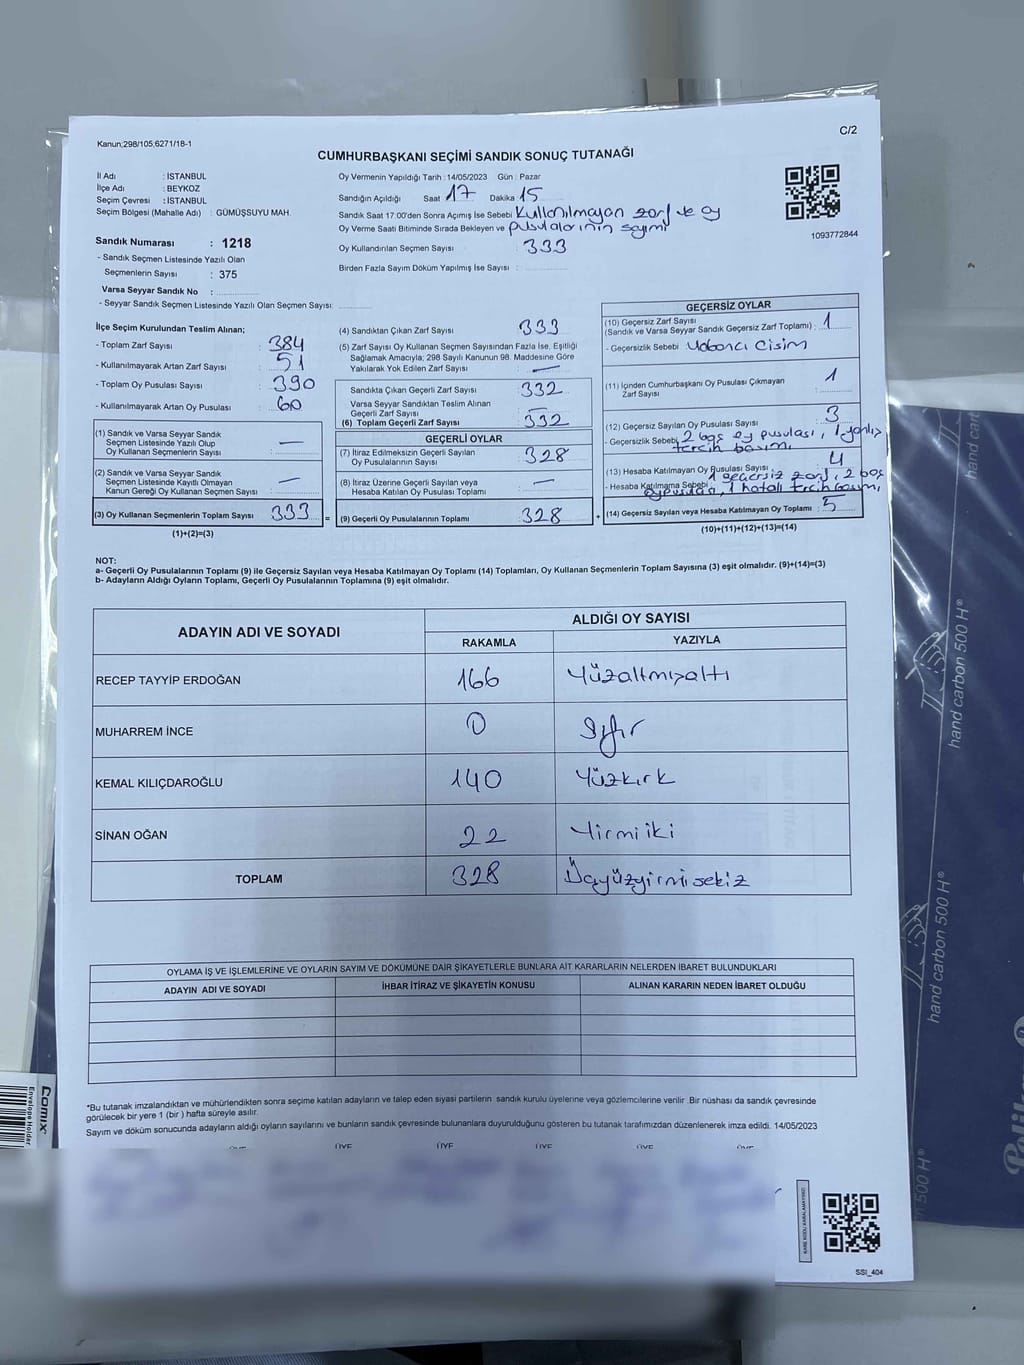 C/2
Kanun;298/105;6271/18-1
CUMHURBAŞKANI SEÇİMİ SANDIK SONUÇ TUTANAĞI
İl Adı : İSTANBUL
İlçe Adı : BEYKOZ
Seçim Çevresi : İSTANBUL
Seçim Bölgesi (Mahalle Adı) : GÜMÜŞSUYU MAH.
Sandık Numarası : 1218
- Sandık Seçmen Listesinde Yazılı Olan
Seçmenlerin Sayısı : 375
Varsa Seyyar Sandık No :
- Seyyar Sandık Seçmen Listesinde Yazılı Olan Seçmen Sayısı:
Oy Vermenin Yapıldığı Tarih : 14/05/2023 Gün : Pazar
Sandığın Açıldığı Saat 17 Dakika 15
Sandık Saat 17.00'den Sonra Açmış İse Sebebi Kullanılmayan zarf ve oy
Oy Verme Saati Bitiminde Sırada Bekleyen ve pusulalarının sayımı
Oy Kullandırılan Seçmen Sayısı : 333
Birden Fazla Sayım Döküm Yapılmış İse Sayısı :
1093772844
İlçe Seçim Kurulundan Teslim Alınan;
- Toplam Zarf Sayısı : 384
- Kullanılmayarak Artan Zarf Sayısı : 51
- Toplam Oy Pusulası Sayısı : 390
- Kullanılmayarak Artan Oy Pusulası : 60
(1) Sandık ve Varsa Seyyar Sandık
Seçmen Listesinde Yazılı Olup
Oy Kullanan Seçmenlerin Sayısı : —
(2) Sandık ve Varsa Seyyar Sandık
Seçmen Listesinde Kayıtlı Olmayan
Kanun Gereği Oy Kullanan Seçmen Sayısı : —
(3) Oy Kullanan Seçmenlerin Toplam Sayısı : 333 =
(1)+(2)=(3)
(4) Sandıktan Çıkan Zarf Sayısı : 333
(5) Zarf Sayısı Oy Kullanan Seçmen Sayısından Fazla İse, Eşitliği
Sağlamak Amacıyla; 298 Sayılı Kanunun 98. Maddesine Göre
Yakılarak Yok Edilen Zarf Sayısı : —
Sandıkta Çıkan Geçerli Zarf Sayısı : 332
Varsa Seyyar Sandıktan Teslim Alınan
Geçerli Zarf Sayısı : —
(6) Toplam Geçerli Zarf Sayısı : 332
GEÇERLİ OYLAR
(7) İtiraz Edilmeksizin Geçerli Sayılan
Oy Pusulalarının Sayısı : 328
(8) İtiraz Üzerine Geçerli Sayılan veya
Hesaba Katılan Oy Pusulası Toplamı : —
(9) Geçerli Oy Pusulalarının Toplamı : 328 +
GEÇERSİZ OYLAR
(10) Geçersiz Zarf Sayısı
(Sandık ve Varsa Seyyar Sandık Geçersiz Zarf Toplamı) : 1
- Geçersizlik Sebebi Yabancı Cisim
(11) İçinden Cumhurbaşkanı Oy Pusulası Çıkmayan
Zarf Sayısı : 1
(12) Geçersiz Sayılan Oy Pusulası Sayısı : 3
- Geçersizlik Sebebi 2 boş oy pusulası, 1 yanlış
tercih basımı
(13) Hesaba Katılmayan Oy Pusulası Sayısı : 4
- Hesaba Katılmama Sebebi 1 geçersiz zarf, 2 boş
oy pusulası, 1 hatalı tercih basımı
(14) Geçersiz Sayılan veya Hesaba Katılmayan Oy Toplamı : 5
(10)+(11)+(12)+(13)=(14)
NOT:
a- Geçerli Oy Pusulalarının Toplamı (9) ile Geçersiz Sayılan veya Hesaba Katılmayan Oy Toplamı (14) Toplamları, Oy Kullanan Seçmenlerin Toplam Sayısına (3) eşit olmalıdır. (9)+(14)=(3)
b- Adayların Aldığı Oyların Toplamı, Geçerli Oy Pusulalarının Toplamına (9) eşit olmalıdır.
ADAYIN ADI VE SOYADI
ALDIĞI OY SAYISI
RAKAMLA YAZIYLA
RECEP TAYYİP ERDOĞAN 166 Yüzaltmışaltı
MUHARREM İNCE 0 Sıfır
KEMAL KILIÇDAROĞLU 140 Yüzkırk
SİNAN OĞAN 22 Yirmiiki
TOPLAM 328 Üçyüzyirmisekiz
OYLAMA İŞ VE İŞLEMLERİNE VE OYLARIN SAYIM VE DÖKÜMÜNE DAİR ŞİKAYETLERLE BUNLARA AİT KARARLARIN NELERDEN İBARET BULUNDUKLARI
ADAYIN ADI VE SOYADI İHBAR İTİRAZ VE ŞİKAYETİN KONUSU ALINAN KARARIN NEDEN İBARET OLDUĞU
*Bu tutanak imzalandıktan ve mühürlendikten sonra seçime katılan adayların ve talep eden siyasi partilerin sandık kurulu üyelerine veya gözlemcilerine verilir .Bir nüshası da sandık çevresinde
görülecek bir yere 1 (bir ) hafta süreyle asılır.
Sayım ve döküm sonucunda adayların aldığı oyların sayılarını ve bunların sandık çevresinde bulunanlara duyurulduğunu gösteren bu tutanak tarafımızdan düzenlenerek imza edildi. 14/05/2023
ÜYE ÜYE ÜYE ÜYE
KARE KODU KARALAMAYINIZ!
SSI_404
comix
Envelope Holder
hand carbon 500 H®
hand carbon 500 H®